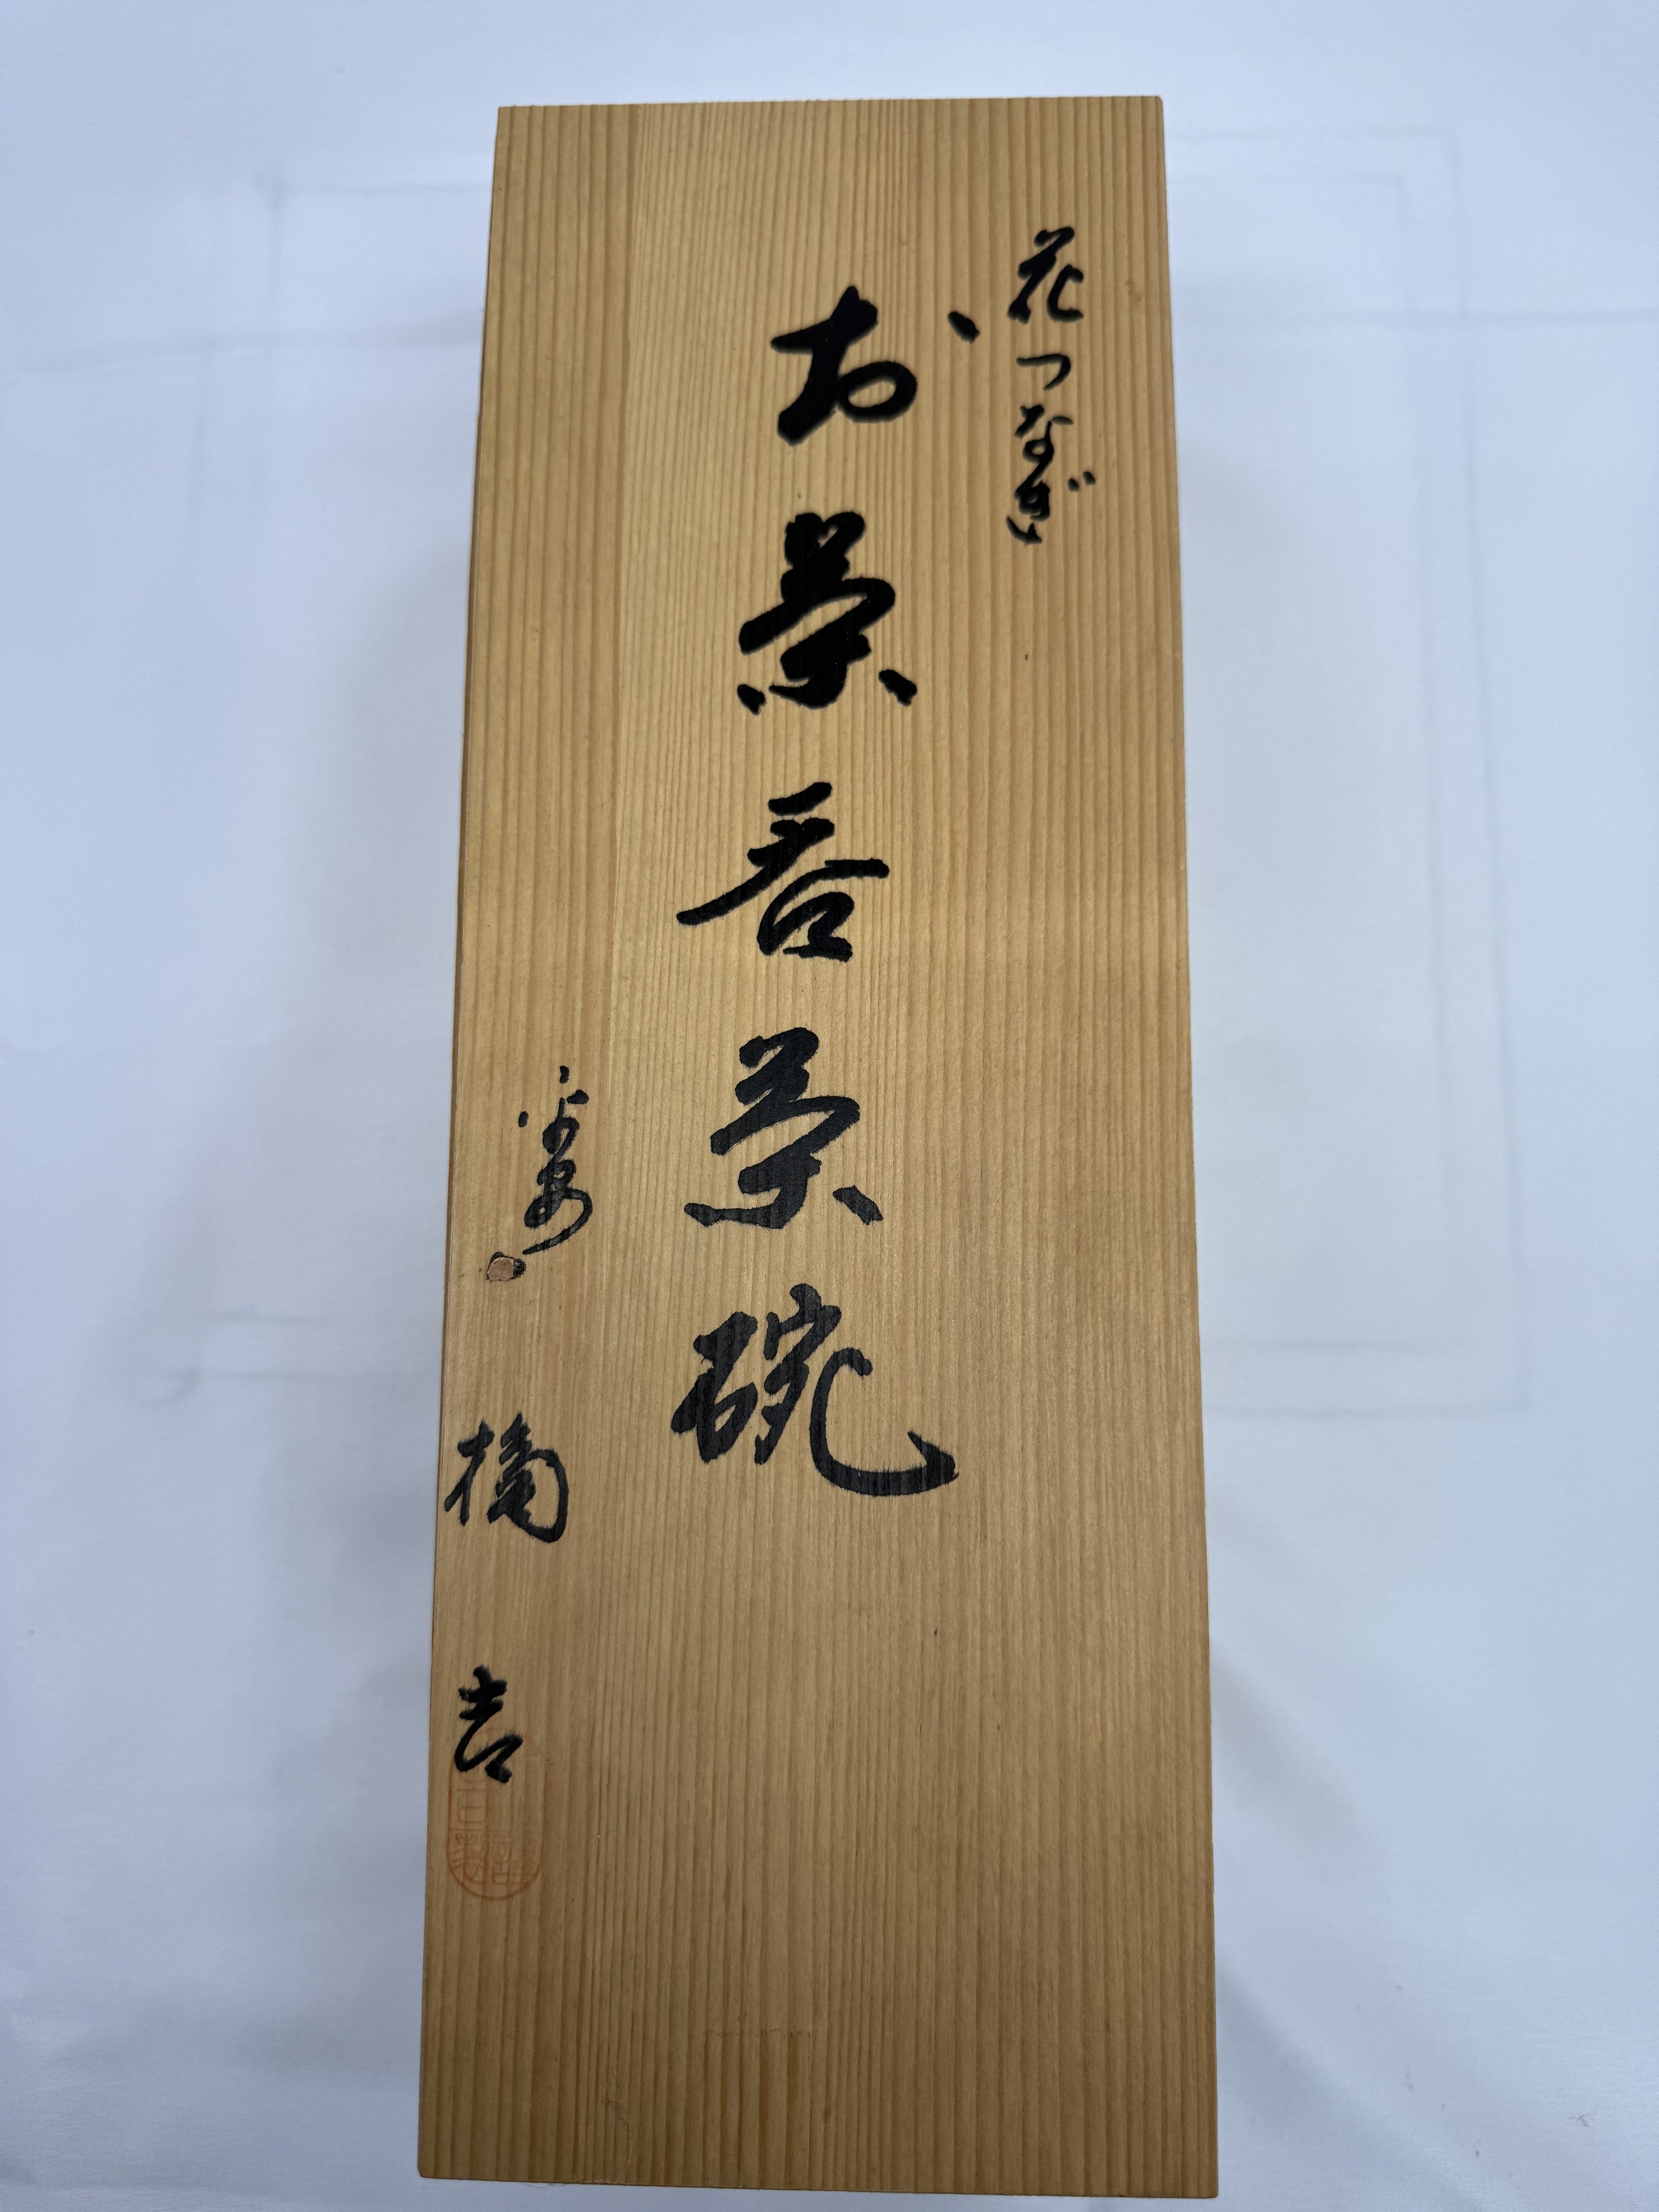 花つなぎ
お茶呑茶碗
平安 橘吉